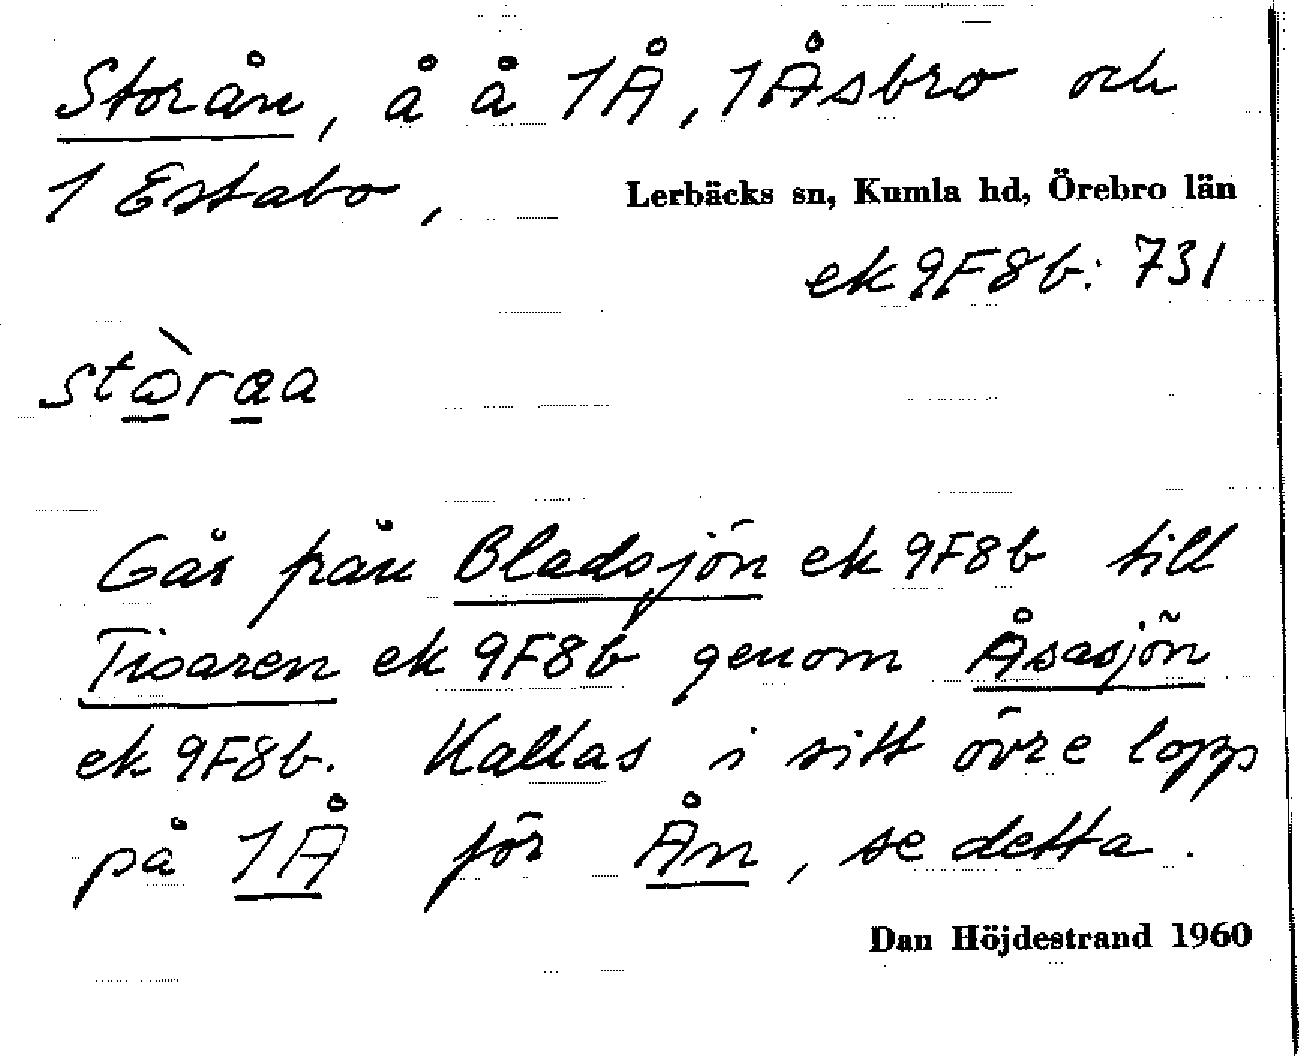 Storån, å å 1Å, 1Åsbro och
1 Estabo,
Lerbäcks sn, Kumla hd, Örebro län
ek 9F8b: 731
Går från Bladsjön ek 9F8b till
Tisaren ek 9F8b genom Åsasjön
ek 9F8b. Kallas i sitt övre lopp
på 1Å för Ån, se detta.
Dan Höjdestrand 1960